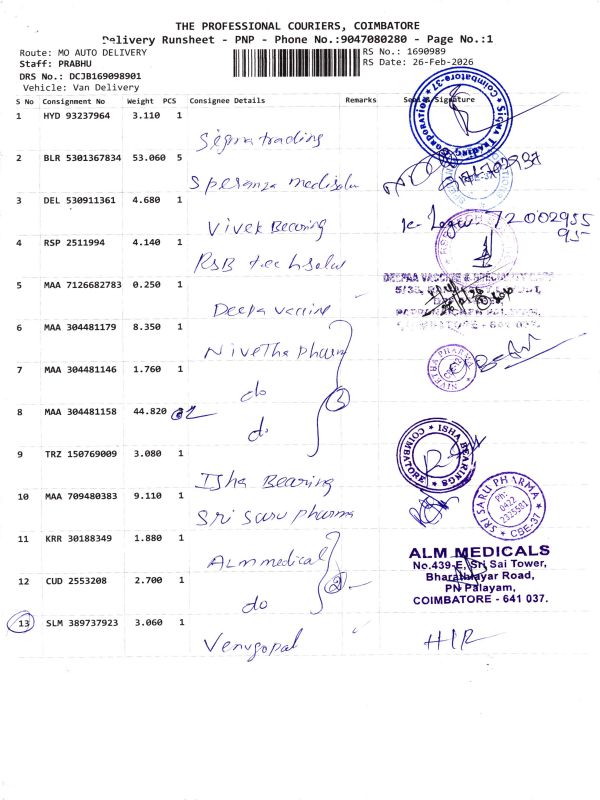 THE PROFESSIONAL COURIERS, COIMBATORE
Delivery Runsheet - PNP - Phone No.:9047080280 - Page No.:1
Route: MO AUTO DELIVERY
RS No.: 1690989
Staff: PRABHU
RS Date: 26-Feb-2026
DRS No.: DCJB169098901
Vehicle: Van Delivery
S No Consignment No Weight PCS Consignee Details Remarks Seal & Signature
1 HYD 93237964 3.110 1
Sigma trading
SIGMA TRADING CORPORATION
Coimbatore-37
2 BLR 5301367834 53.060 5
Speranza medisolu
3 DEL 530911361 4.680 1
Vivek Bearing
72002955
95-
4 RSP 2511994 4.140 1
RSB techsolu
5 MAA 7126682783 0.250 1
Deepa vaccine
DEEPAA VACCINE &
COIMBATORE - 641 037.
6 MAA 304481179 8.350 1
Nivetha pharm
NIVETHA PHARMA
7 MAA 304481146 1.760 1
do
3
8 MAA 304481158 44.820 2
do
9 TRZ 150769009 3.080 1
Isha Bearing
ISHA BEARINGS
COIMBATORE
10 MAA 709480383 9.110 1
Sri Saru pharma
SRI SARU PHARMA
PH:
0422
2325501
CBE-37
11 KRR 30188349 1.880 1
ALM medical
2
ALM MEDICALS
No.439-E, Sri Sai Tower,
Bharathiayar Road,
PN Palayam,
COIMBATORE - 641 037.
12 CUD 2553208 2.700 1
do
13 SLM 389737923 3.060 1
Venugopal